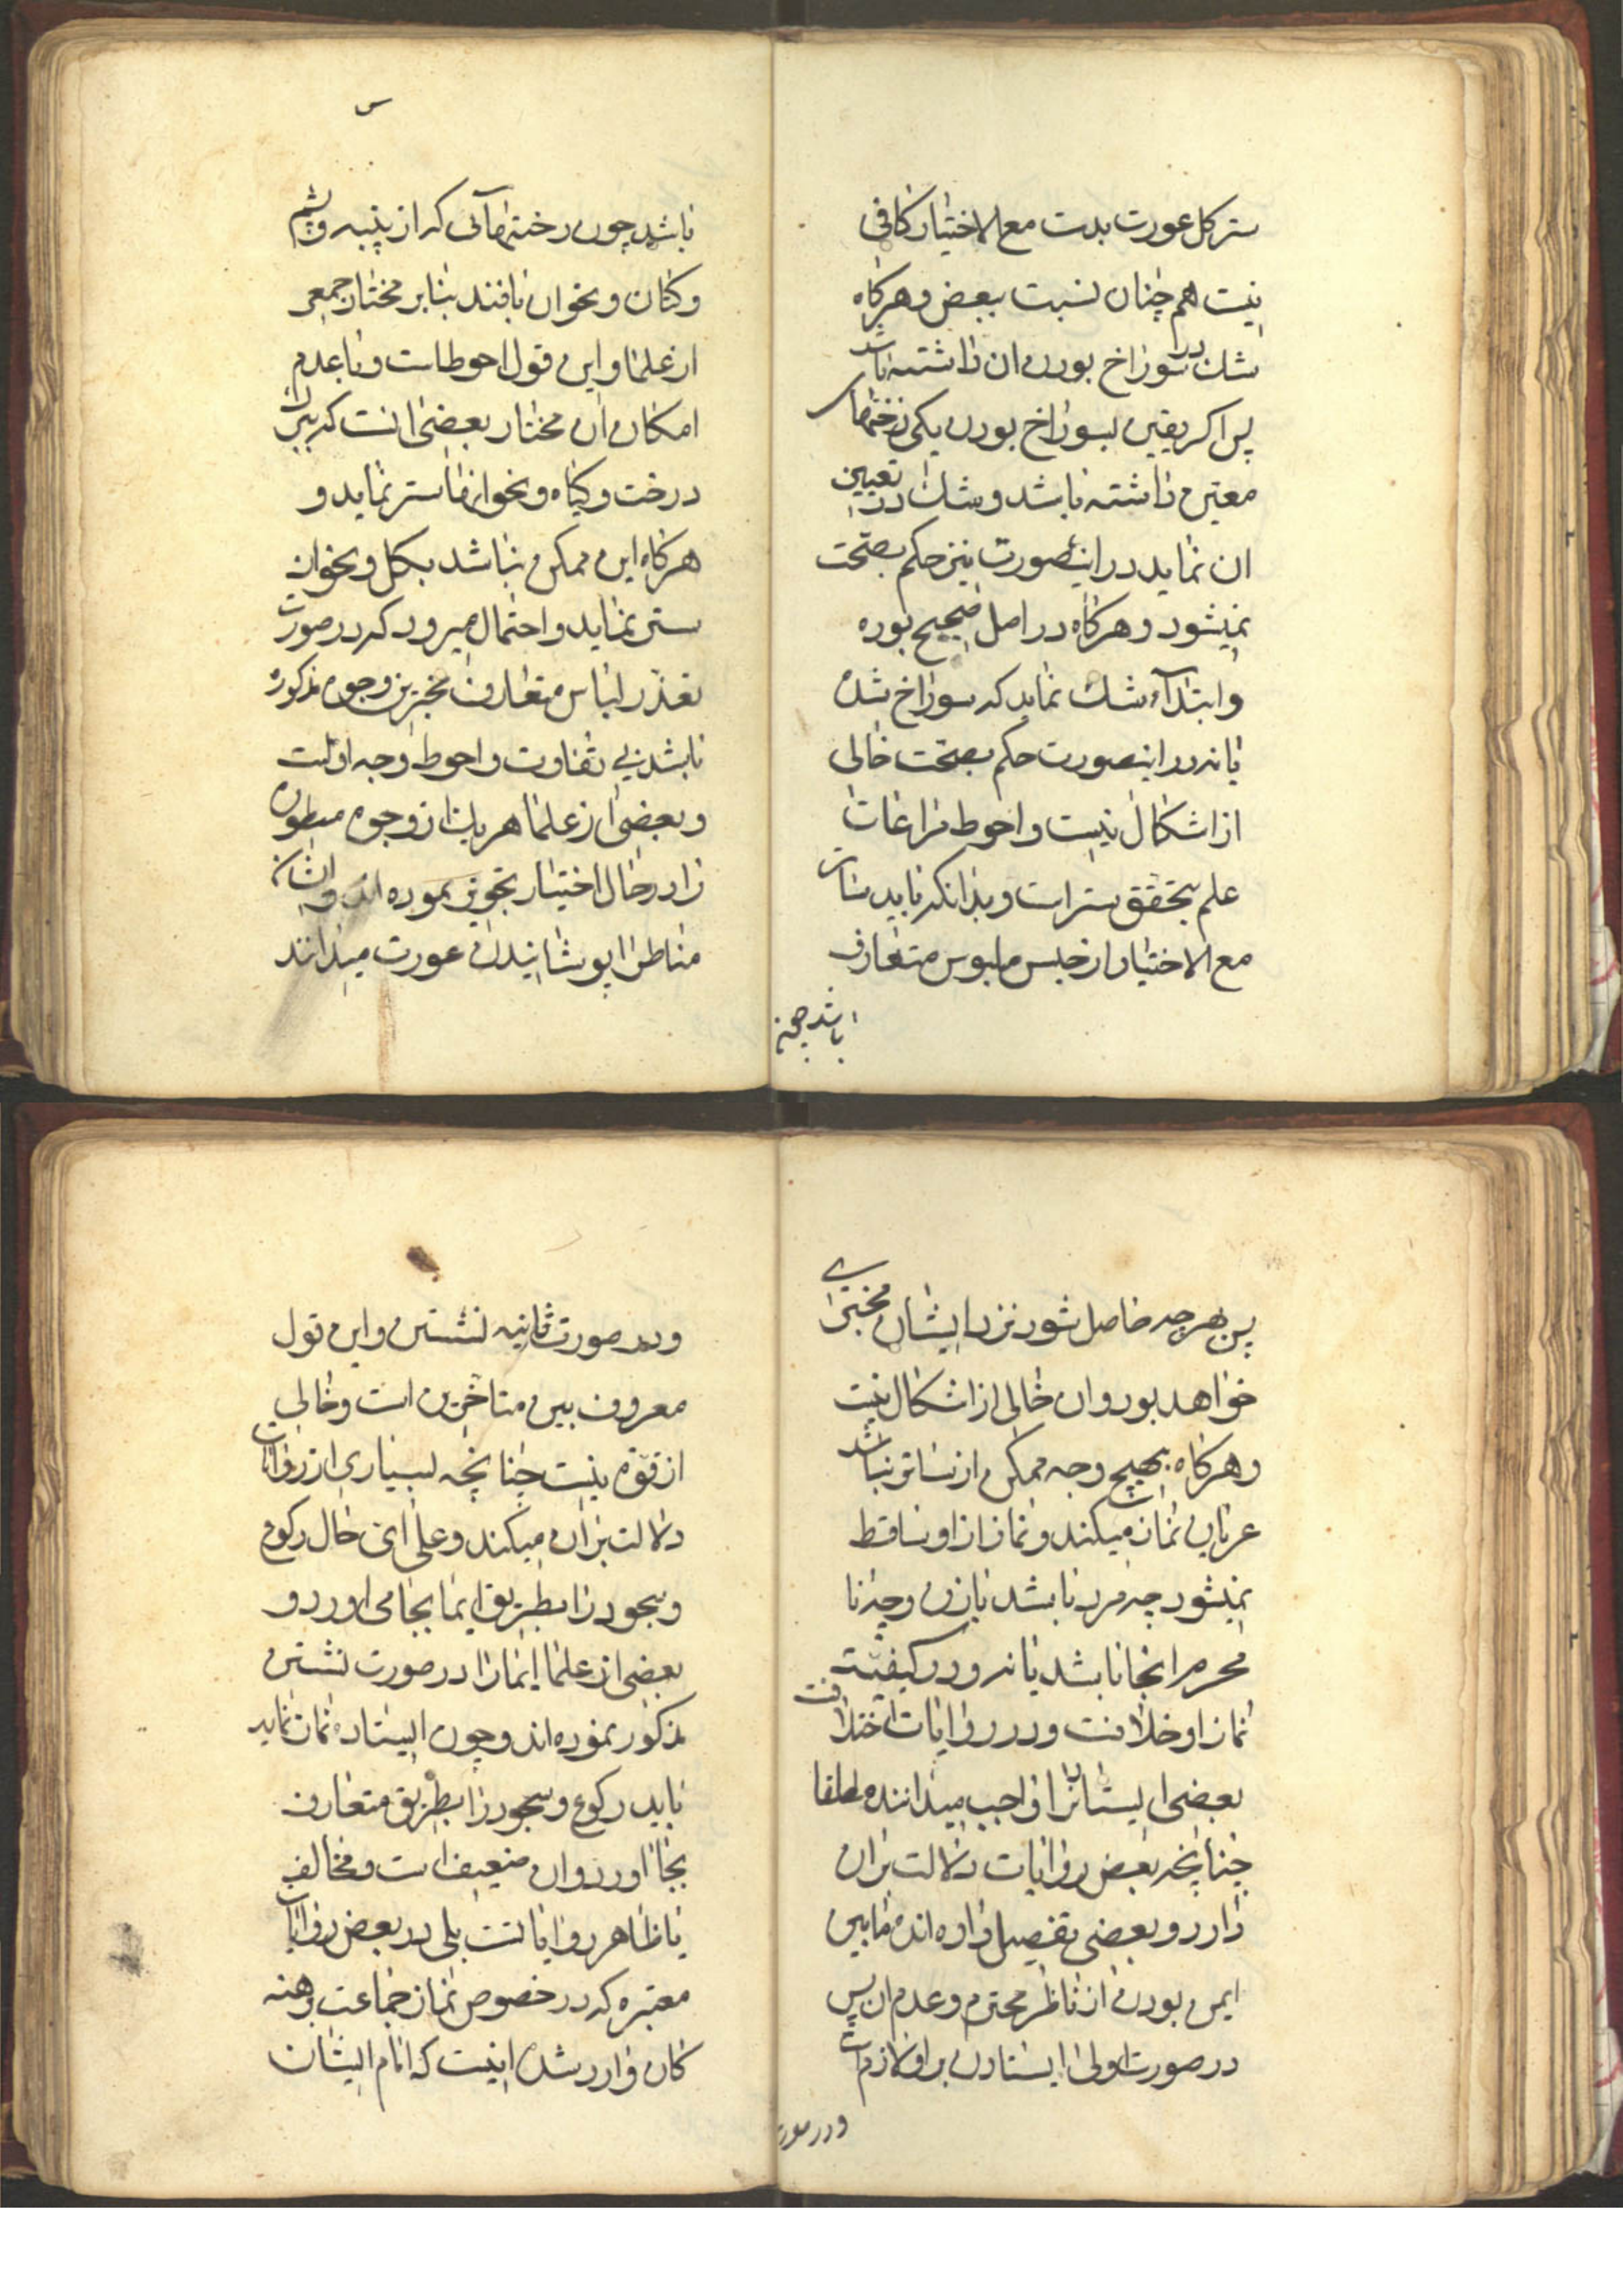 ستر کل عورت بدن مع الاختیار کافی
نیست هم چنان نسبت ببعض و هرگاه
شک در سوراخ بودن ان داشته باشد
پس اکر یقین بسوراخ بودن یکی از رختهای
معین داشته باشد و شک در تعیین
ان نماید در اینصورت نیز حکم بصحت
نمیشود و هرکاه در اصل صحیح بوده
و ابتداء شک نماید که سوراخ شده
یا نه در اینصورت حکم بصحت خالی
از اشکال نیست و احوط مراعات
علم بتحقق ستر است و بدانکه باید ساتر
مع الاختیار از جنس ملبوس متعارف
باشد چون
باشد چون رختهائی که از پنبه و پشم
و کتان و نحو ان بافند بنابر مختار جمعی
از علما و این قول احوط است و با عدم
امکان ان مختار بعضی انست که ببرک
درخت و کیاه و نحو انها ستر نماید و
هرکاه این ممکن نباشد بکل و نحو ان
ستر نماید و احتمال میرود که در صورت
تعذر لباس متعارف مخیر بین وجوه مذکوره
باشد بی تفاوت و احوط وجه اولست
و بعضی از علما هر یک از وجوه مسطوره
را در حال اختیار تجویز نموده اند و ایشان
مناط را پوشانیدن عورت میدانند
پس بهر چه حاصل شود نزد ایشان مجزی
خواهد بود و ان خالی از اشکال نیست
و هرکاه بهیچ وجه ممکن از ساتر نباشد
عریان نماز میکند و نماز از او ساقط
نمیشود چه مرد باشد یا زن و چه نا
محرم انجا باشد یا نه و در کیفیت
نماز او خلافست و در روایات اختلاف
بعضی ایستادن را واجب میدانند مطلقا
چنانچه بعض روایات دلالت بران
دارد و بعضی تفصیل داده اند مابین
ایمن بودن از ناظر محترم و عدم ان پس
در صورت اولی ایستادن بر او لازم است
و در صورت
و در صورت ثانیه نشستن و این قول
معروف بین متاخرین است و خالی
از قوة نیست چنانچه بسیاری از روایات
دلالت بران میکند و علی ای حال رکوع
و سجود را بطریق ایما بجا می اورد و
بعضی از علما ایما را در صورت نشستن
مذکور نموده اند و چون ایستاده نماز نماید
باید رکوع و سجود را بطریق متعارف
بجا اورد و ان ضعیف است و مخالف
با ظاهر روایاتست بلی در بعض روایات
معتبره که در خصوص نماز جماعت برهنه
کان وارد شده اینست که امام ایشان